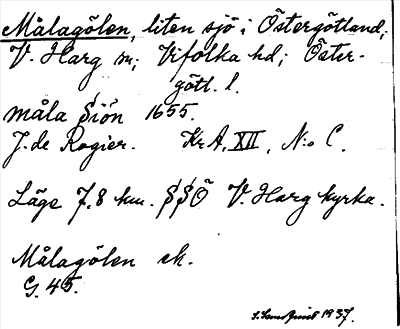 Målagölen, liten sjö i Östergötland;
V. Harg sn; Vifolka hd; Öster-
götl. l.
måla Siön 1655.
J. de Rogier. KrA, XII, N:o C.
Läge 7,8 km. SSÖ V. Harg kyrka.
Målagölen ek.
G. 45.
1937.